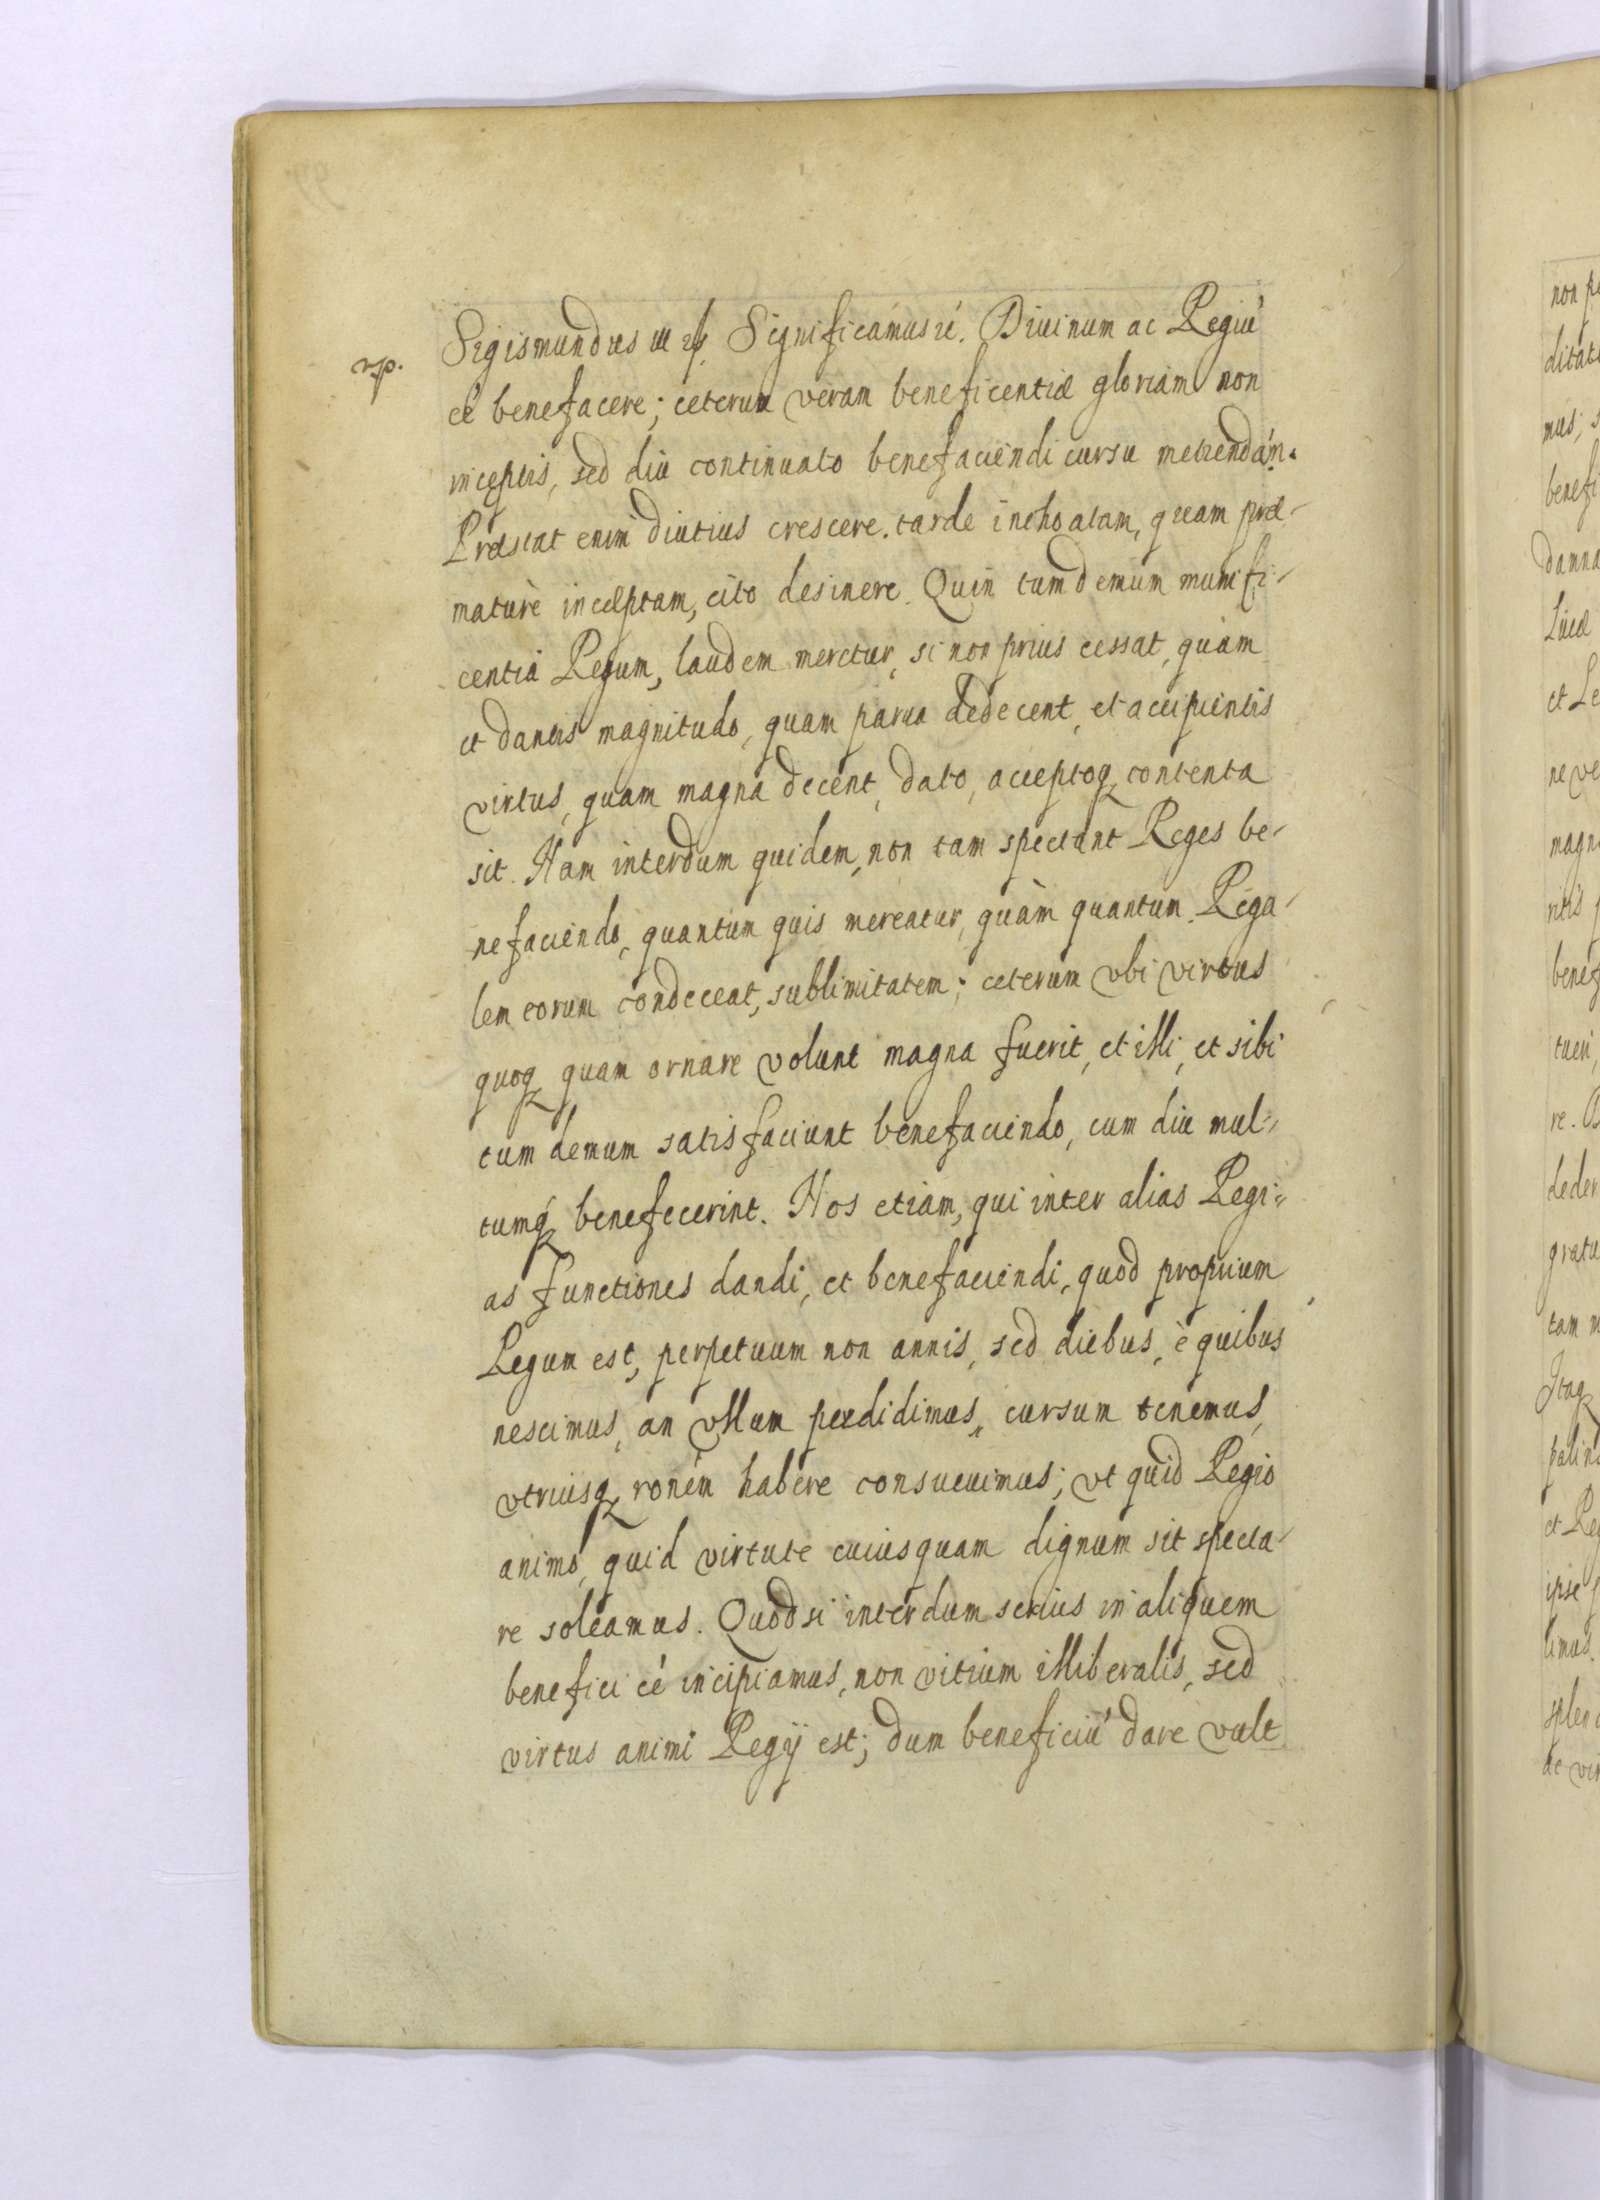 Sigismundus III Significamus Diuinum ac Regiu'
ee' benefacere; ceterum veram beneficentiæ gloriam non
inceptis, sed diu continuato benefaciendi cursu metiendam.
Præstat enim diutius crescere tarde inchoatam, quam præ-
maturè inceptam, cito desinere. Quin tum demum munifi-
centia Regum, laudem meretur, si non prius cessat, quàm
et dantis magnitudo, quam parua dedecent, et accipientis
virtus, quam magna decent, dato, acceptoq; contenta
sit. Nam interdum quidem, non tam spectant Reges be-
nefaciendo, quantum quis mereatur, quàm quantum Rega-
lem eorum condeceat, sublimitatem; ceterum vbi virtus
quoq; quam ornare volunt magna fuerit, et illi, et sibi
tum demum satisfaciunt benefaciendo, cum diu mul-
tumq; benefecerint. Nos etiam, qui inter alias Regi-
as functiones dandi, et benefaciendi, quod proprium
Regum est, perpetuum non annis, sed diebus, è quibus
nescimus, an vllum perdidimus, cursum tenemus,
vtriusq; ronem habere consueuimus; vt quid Regio
animo, quid virtute cuiusquam dignum sit specta-
re soleamus. Quodsi interdum serius in aliquem
benefici ee' incipiamus, non vitium illiberalis, sed
virtus animi Regij est; dum beneficiu' dare vult